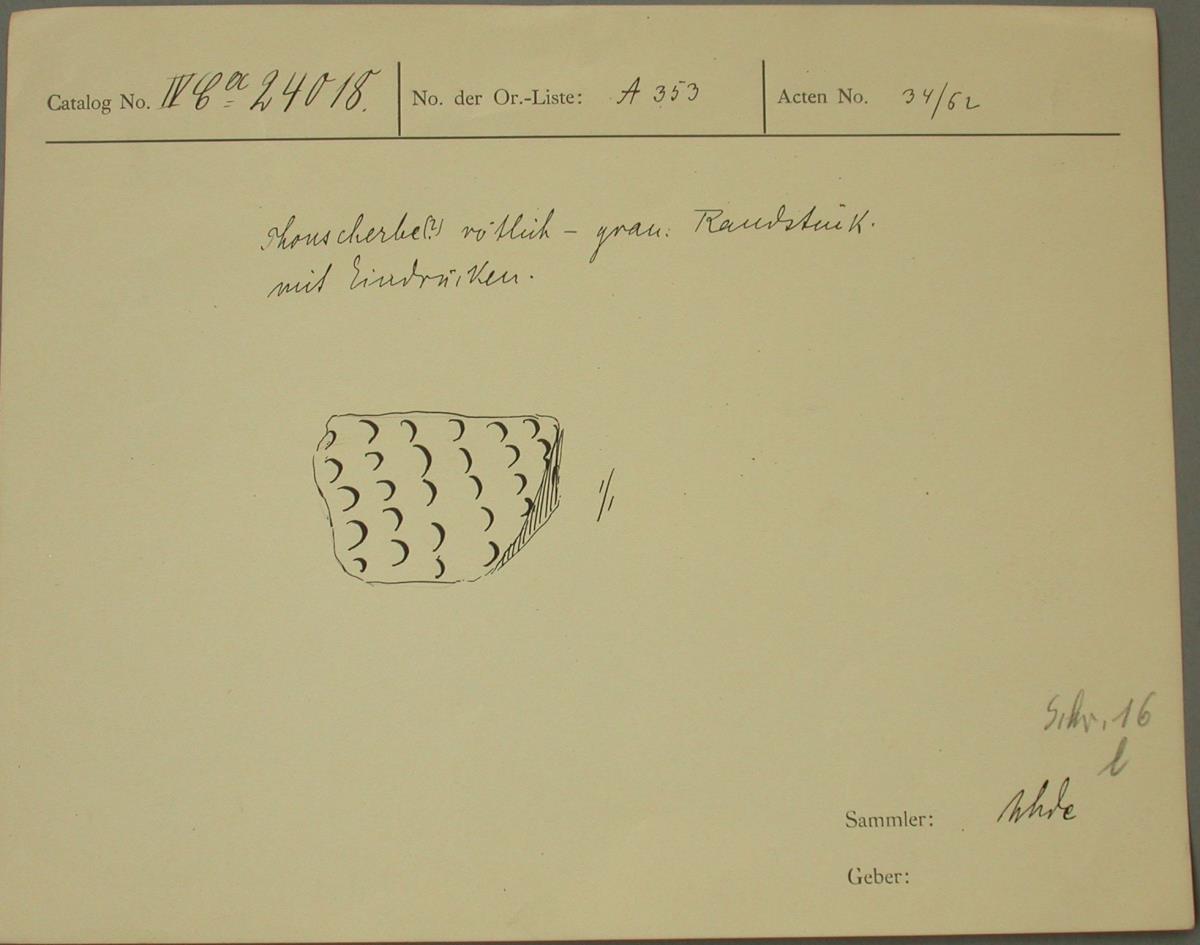 Catalog No. IV Ca 24018. No. der Or.-Liste: A 353 Acten No. 34/62
Thonscherbe(?) rötlich – grau. Randstück.
mit Eindrücken.
1/1
Schr. 16
l
Sammler: Uhde
Geber: